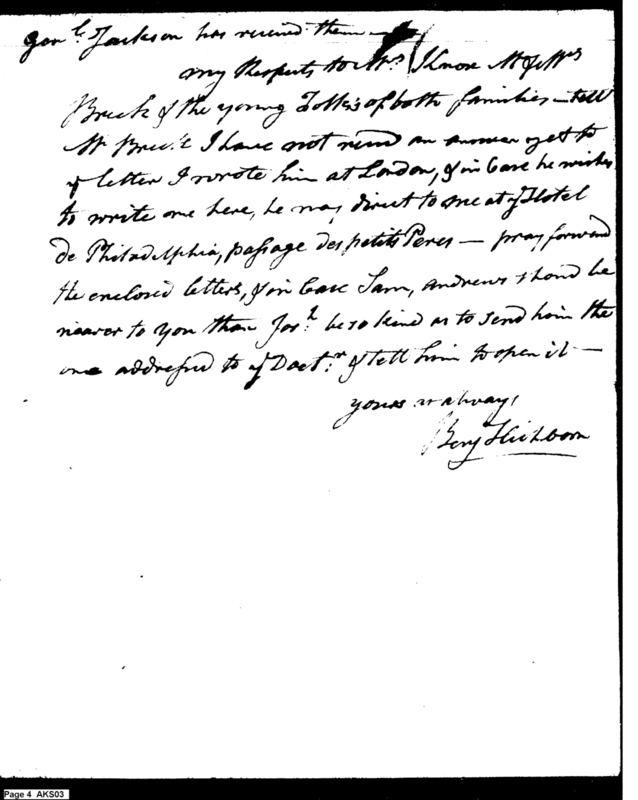 Gen.l Jackson has received them —
my Respects to Mrs. Knox Mr & Mrs
Breck & the young Folks of both families — tell
Mr Breck I have not rec'd an answer yet to
ye letter I wrote him at London, & in Case he wishes
to write me here, he may direct to me at ye Hotel
de Philadelphia, passage des petits Peres — pray forward
the enclosed letters, & in Case Sam, Andrews should be
nearer to you than Jos.h be so kind as to send him the
one addressed to ye Doct.r & tell him to open it —
yours as always,
Benj Hichborn
Page 4 AKS03